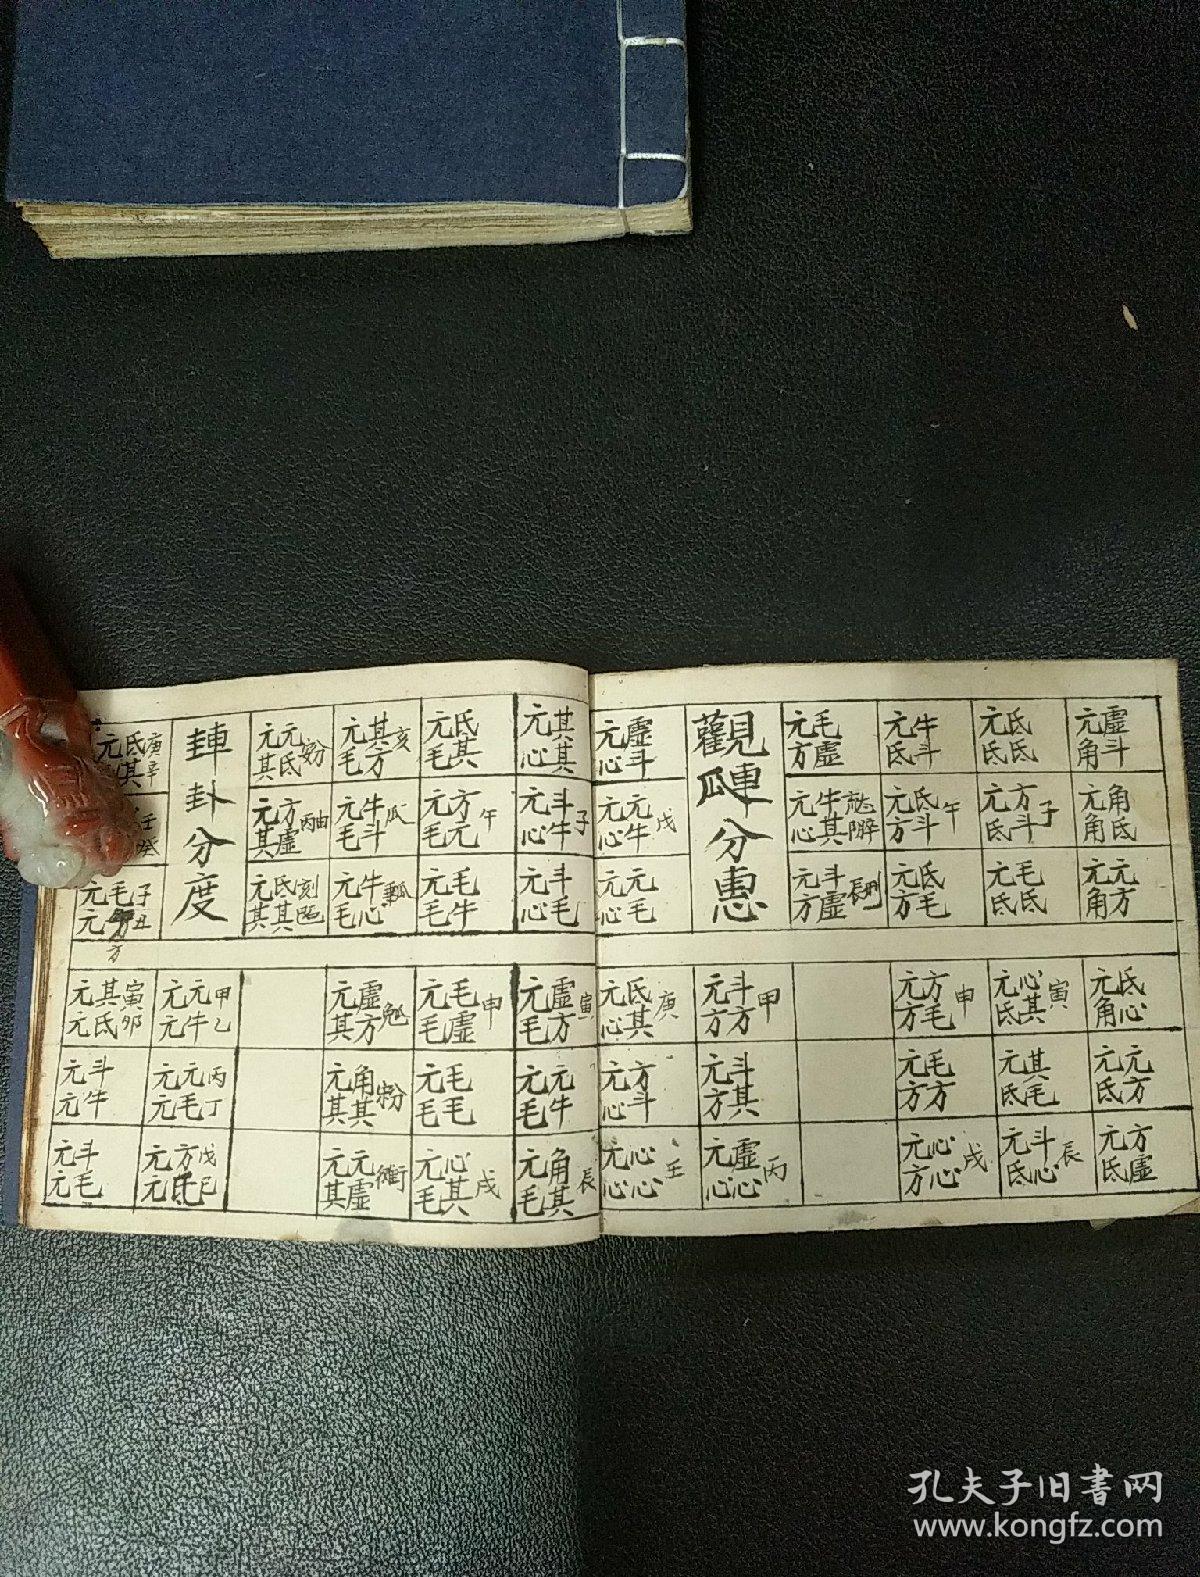 元虛角斗
元角角氐
元元角方
元氐氐氐
元方氐斗子
元毛氐氐
元牛氐斗
元氐方斗午
元氐方毛
元毛方虛
元牛心其
元斗方虛
分惠
元虛心斗
元元心牛戊
元元心毛
元其心其
元斗心牛子
元斗心毛
元氐毛其
元方毛元午
元毛毛牛
元其毛方亥
元牛毛斗瓜
元牛毛心
元元其氐
元方其虛
元氐其其
卦分度
元氐其庚辛
壬癸
元毛元方子丑
元氐角心
元元氐方
元方氐虛
元心氐其寅
元其氐毛
元斗氐心辰
元方方毛申
元毛方方
元心方心戌
元斗方方甲
元斗方其
元虛心心丙
元氐心其庚
元方心斗
元心心心壬
元虛毛方寅
元元毛牛
元角毛其辰
元毛毛虛申
元毛毛毛
元心毛其戌
元虛其方
元角其其
元元其虛
元元元牛甲乙
元元元毛丙丁
元方元氐戊巳
元其元氐寅卯
元斗元牛
元斗元毛
孔夫子旧书网
www.kongfz.com